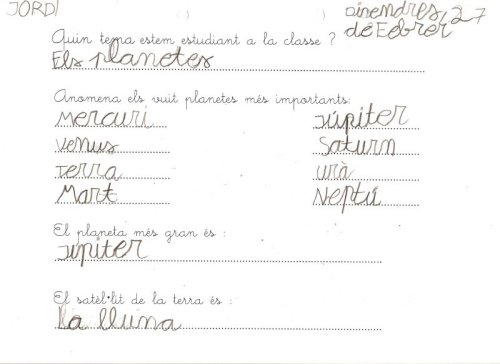 JORDI
Divendres, 27
de Febrer
Quin tema estem estudiant a la classe ?
Els planetes
Anomena els vuit planetes més importants:
Mercuri Júpiter
Venus Saturn
Terra Urà
Mart Neptú
El planeta més gran és :
Júpiter
El satèl·lit de la terra és :
La lluna